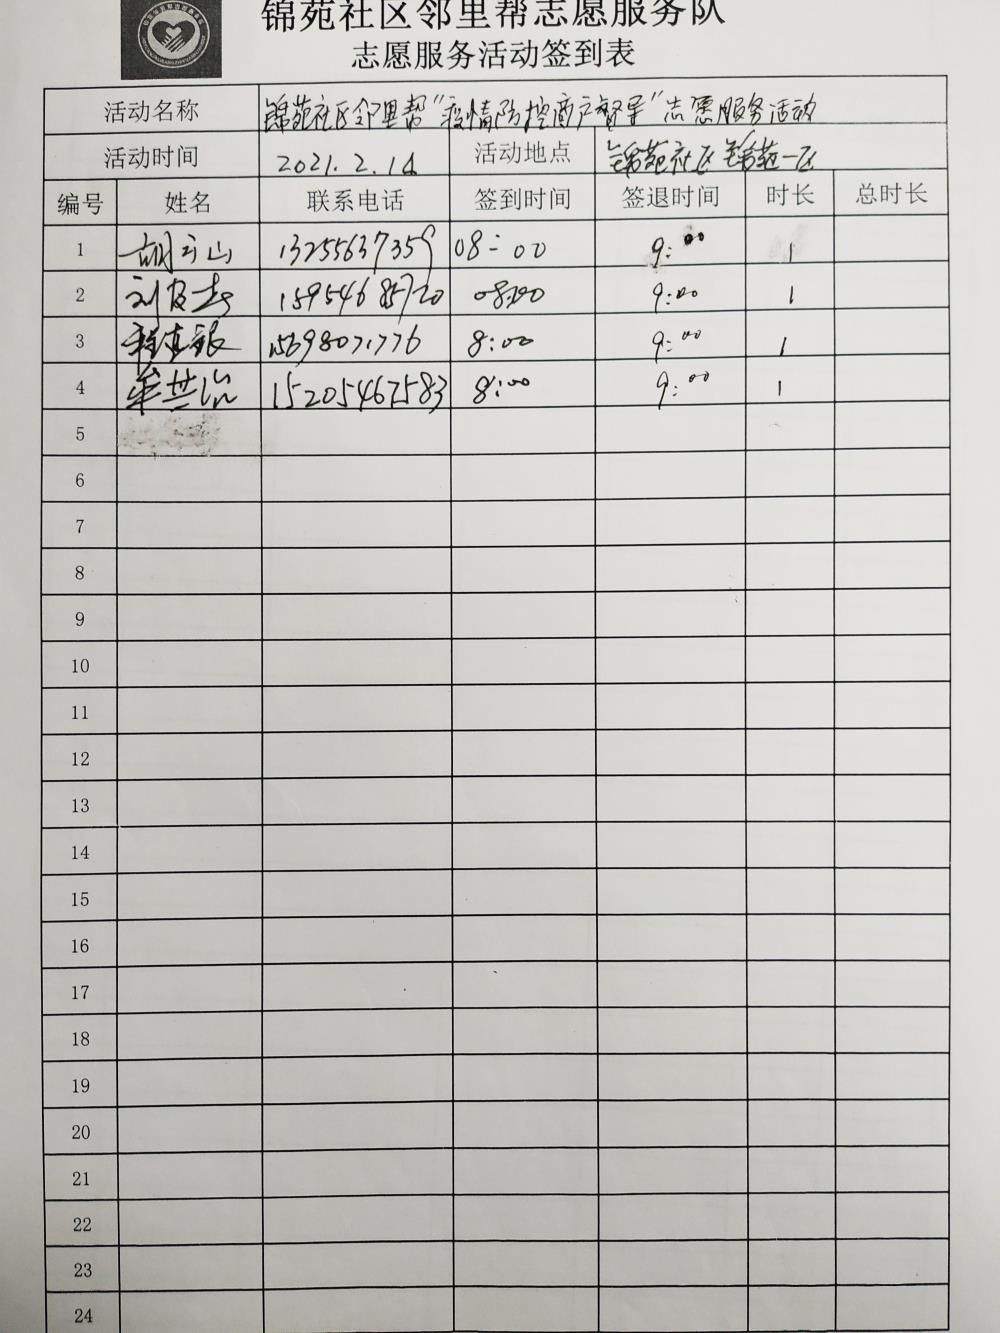 锦苑社区邻里帮志愿服务队
志愿服务活动签到表
活动名称 锦苑社区邻里帮“疫情防控商户督导”志愿服务活动
活动时间 2021.2.14 活动地点 锦苑社区锦苑一区
编号 姓名 联系电话 签到时间 签退时间 时长 总时长
1 胡云山 13255637359 08:00 9:00 1
2 15954685720 08:00 9:00 1
3 15698071776 8:00 9:00 1
4 15205467583 8:00 9:00 1
5
6
7
8
9
10
11
12
13
14
15
16
17
18
19
20
21
22
23
24